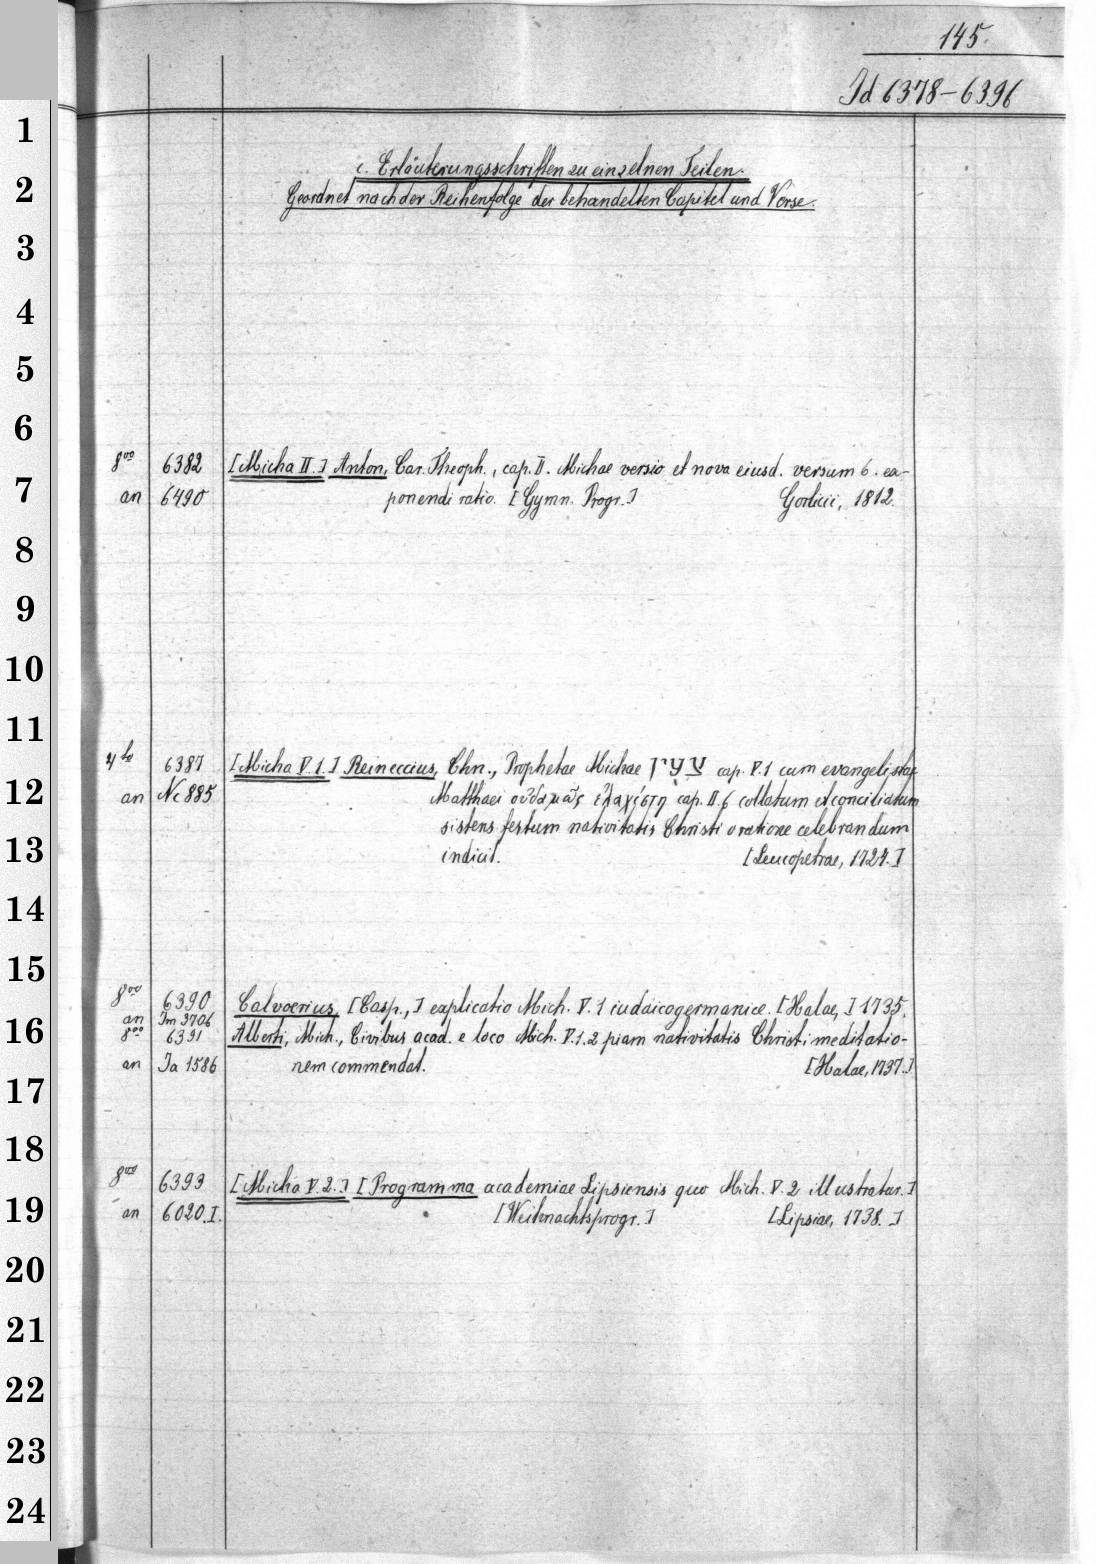 145.
Id 6378-6396
c. Erläuterungsschriften zu einzelnen Teilen.
Geordnet nach der Reihenfolge der behandelten Capitel und Verse.
8vo 6382 [Micha II.] Anton, Car. Theoph., cap. II. Michae versio et nova eiusd. versum 6. ex-
an 6490 ponendi ratio. [Gymn. Progr.] Gorlicii, 1812.
4to 6387 [Micha V.1.] Reineccius, Chn., Prophetae Michae צעיר cap. V.1 cum evangelistae
an Nc 885 Matthaei οὐδαμῶς ἐλαχίστη cap. II.6 collatum et conciliatum
sistens festum nativitatis Christi oratione celebrandum
indicit. [Leucopetrae, 1724.]
8vo 6390 Calvoerius, [Casp.,] explicatio Mich. V.1 iudaicogermanice. [Halae,] 1735.
an Im 3706
8vo 6391 Alberti, Mich., Civibus acad. e loco Mich. V.1.2 piam nativitatis Christi meditatio-
an Ia 1586 nem commendat. [Halae, 1737.]
8vo 6393 [Micha V.2.] [Programma academiae Lipsiensis quo Mich. V.2 illustratur.]
an 6020.I. [Weihnachtsprogr.] [Lipsiae, 1738.]
1
2
3
4
5
6
7
8
9
10
11
12
13
14
15
16
17
18
19
20
21
22
23
24